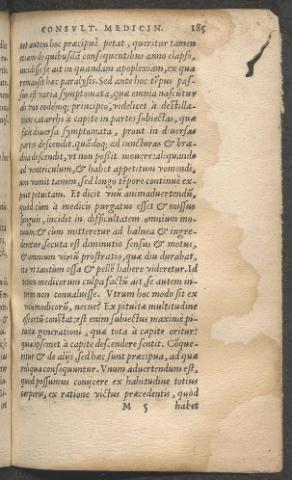 CONSVLT. MEDICIN. 185
tet autem hoc præcipuè petat, queritur tamen
etiam de quibusdā consequentibus anno elapso,
incidisse se ait in quandam apoplexiam, ex qua
remansit hæc paralysis. Sed ante hoc tēpus pas-
sus est varia symptomata, quæ omnia nascūtur
ab vno eodémq; principio, videlicet à destilla-
tione catarrhi à capite in partes subiectas, quæ
sūt diuersa symptomata, prout in diuersas
partes descendit. quādoq; ad iuncturas & bra-
chia descendit, vt non possit mouere: aliquando
ad ventriculum, & habet appetitum vomendi,
non vomit tamen, sed longo tēpore continuè ex-
puit pituitam. Et dicit vnū animaduertendū,
quòd cùm à medicis purgatus esset & missus
sanguis, incidit in difficultatem omnium mo-
tuum: & cùm mitteretur ad balnea & ingre-
deretur, secuta est diminutio sensus & motus,
& omnium viriū prostratio, quæ diu durabat,
ita vt tantùm ossa & pellē habere videretur. Id
autem medicorum culpa factū ait, se autem in-
terim non conualuisse. Vtrum hoc modo sit ex
medicorū, necne? Ex pituitæ multitudine
est: est enim subiectus maximè pi-
tuitæ generationi, quæ tota à capite oritur:
quam semet à capite descendere sentit. Cōque-
ritur & de alijs, sed hæc sunt præcipua, ad quæ
reliqua consequuntur. Vnum aduertendum est,
quod possumus conijcere ex habitudine totius
corporis, ex ratione victus præcedentis, quòd
M 5 habet